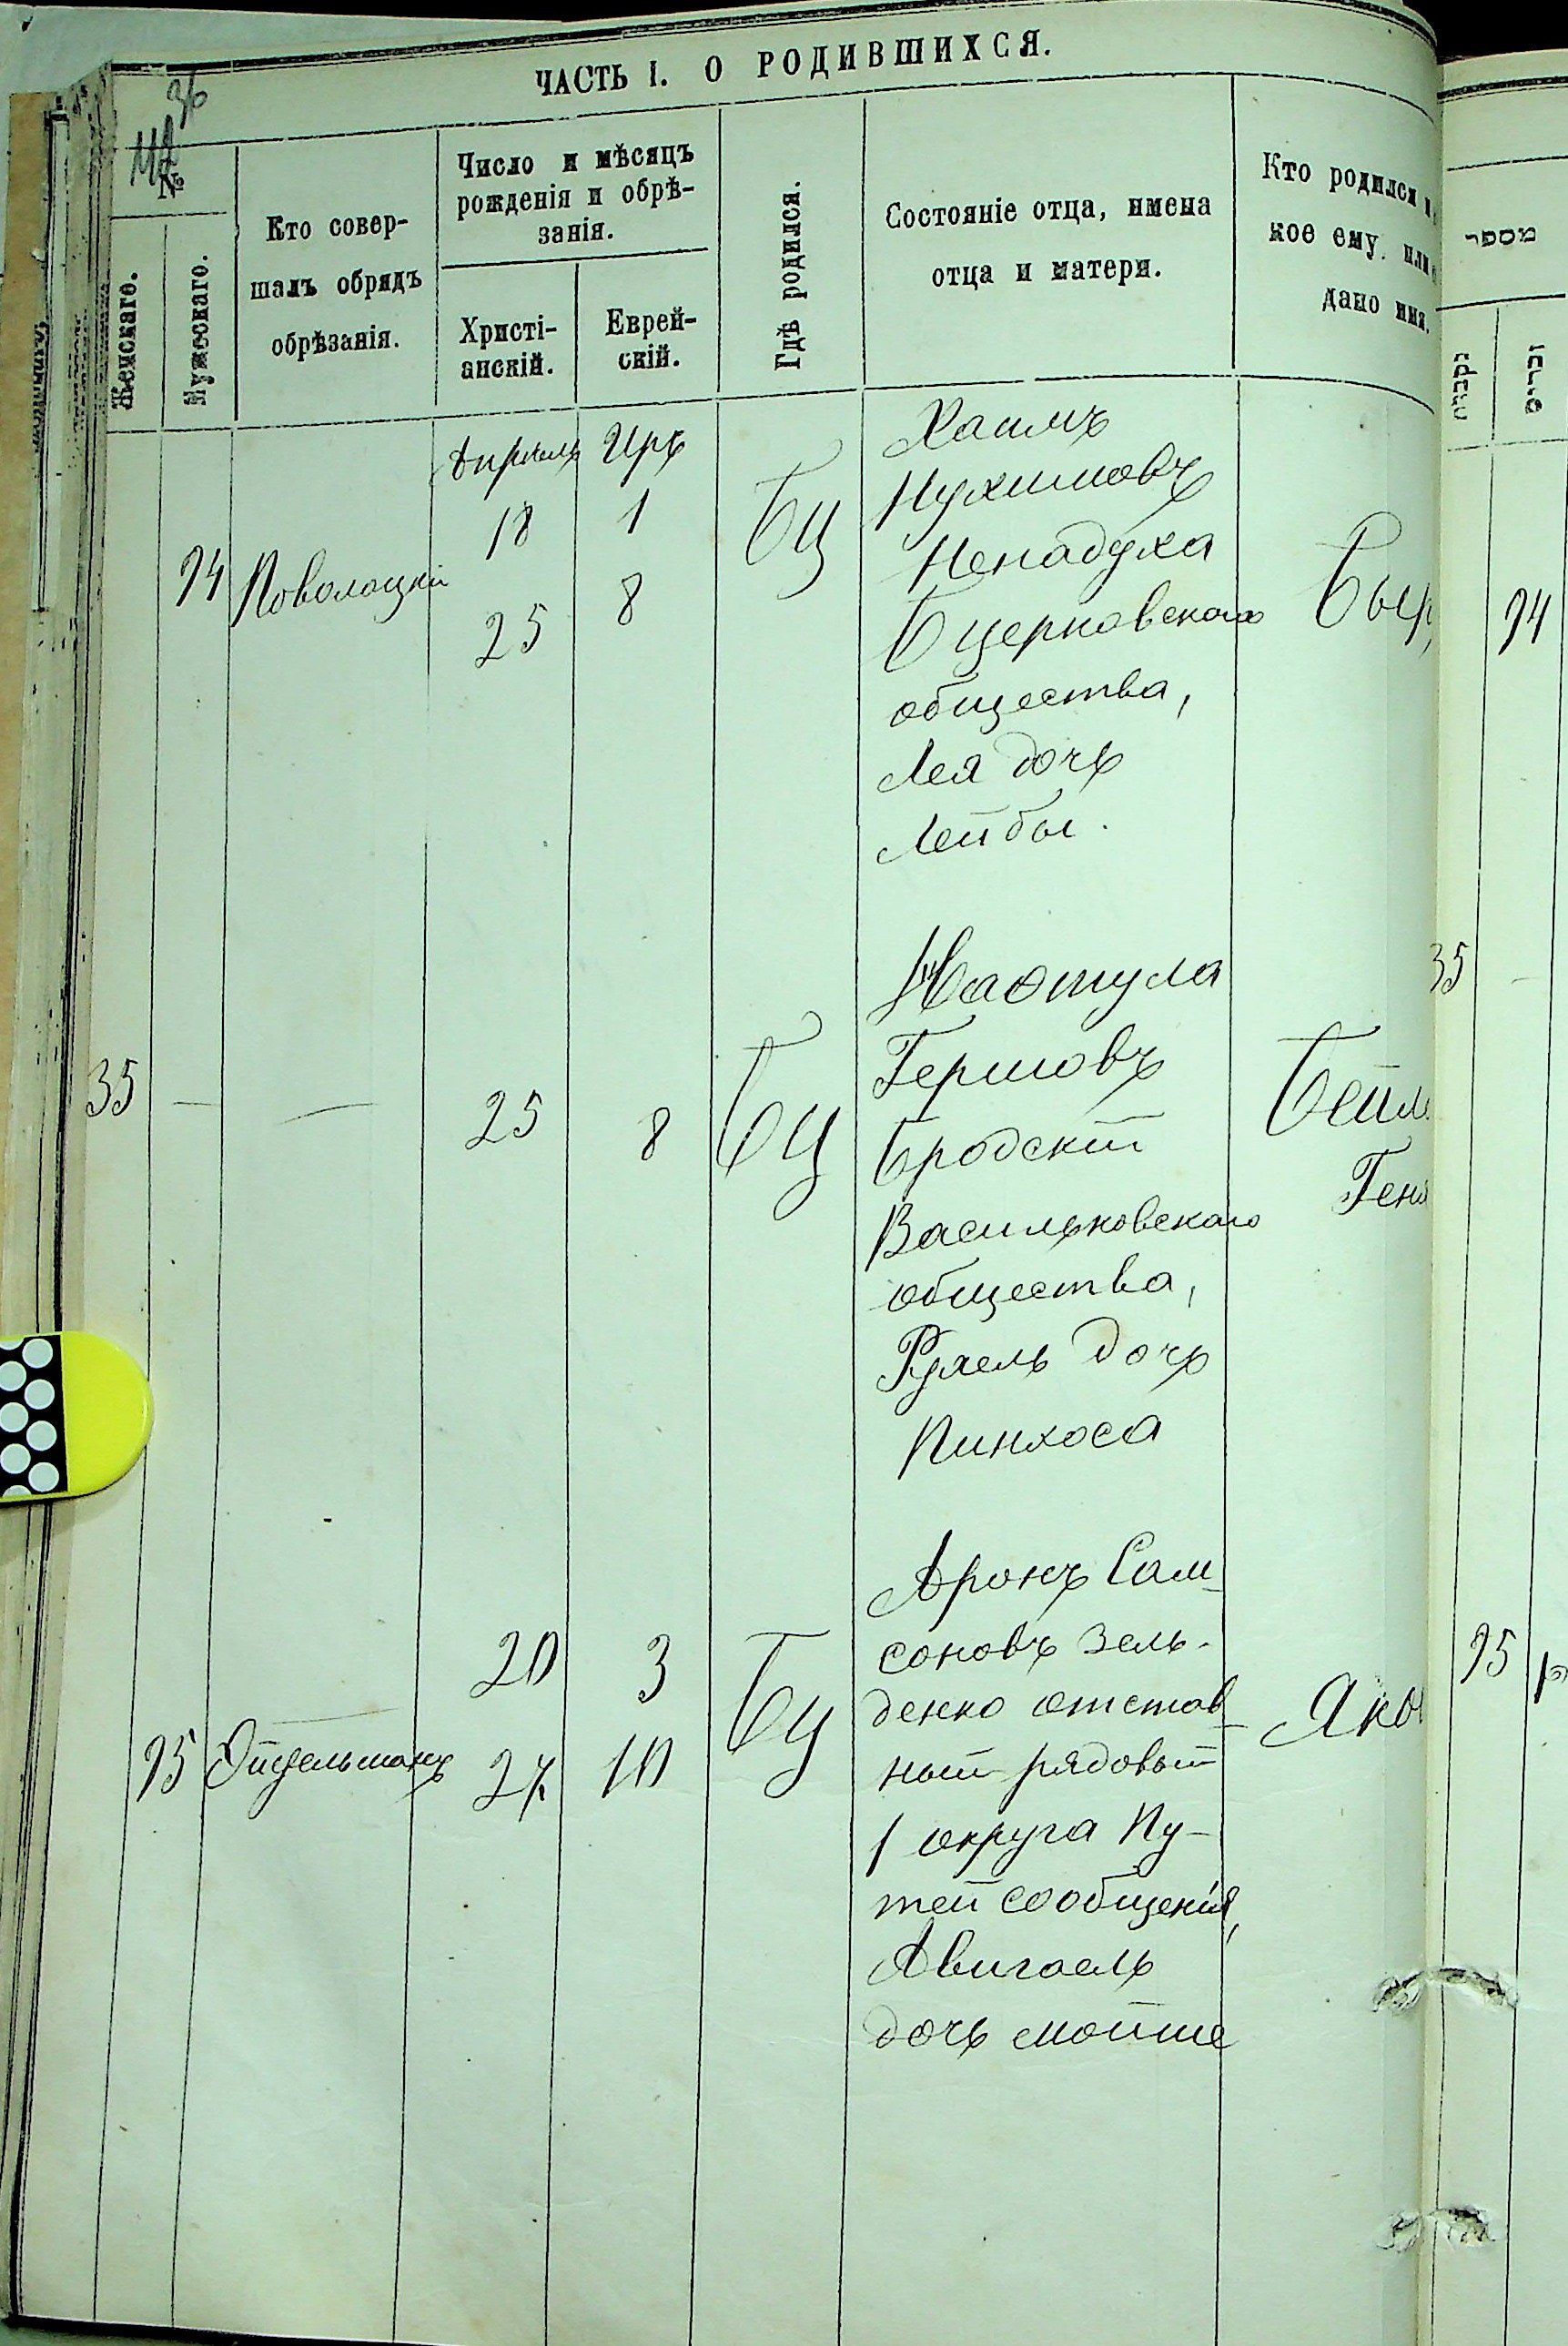 ЧАСТЬ I. О РОДИВШИХСЯ.
36
№
Женскаго.
Мужескаго.
Кто совер-
шалъ обрядъ
обрѣзанія.
Число и мѣсяцъ
рожденія и обрѣ-
занія.
Христі-
анскій.
Еврей-
скій.
Гдѣ родился.
Состояніе отца, имена
отца и матери.
Кто родился и
кое ему или
дано имя.
מספר
נקבות
זכרים
94
Поволоцкій
Апрѣль
18
25
Иръ
1
8
БЦ
Хаимъ
Нухимовъ
Ненадуха
Бцерковскаго
общества,
Лея дочь
Лейбы.
94
35
—
—
25
8
БЦ
Гершовъ
Бродскій
Васильковскаго
общества,
Рухель дочь
Пинхоса
Бейл
Геня
35
95
Эйдельманъ
20
27
3
10
БЦ
Аронъ Сам-
соновъ Зель-
денко отстав-
ный рядовый
1 округа Пу-
тей сообщенія,
Авигаель
дочь Мойше
Яко
95